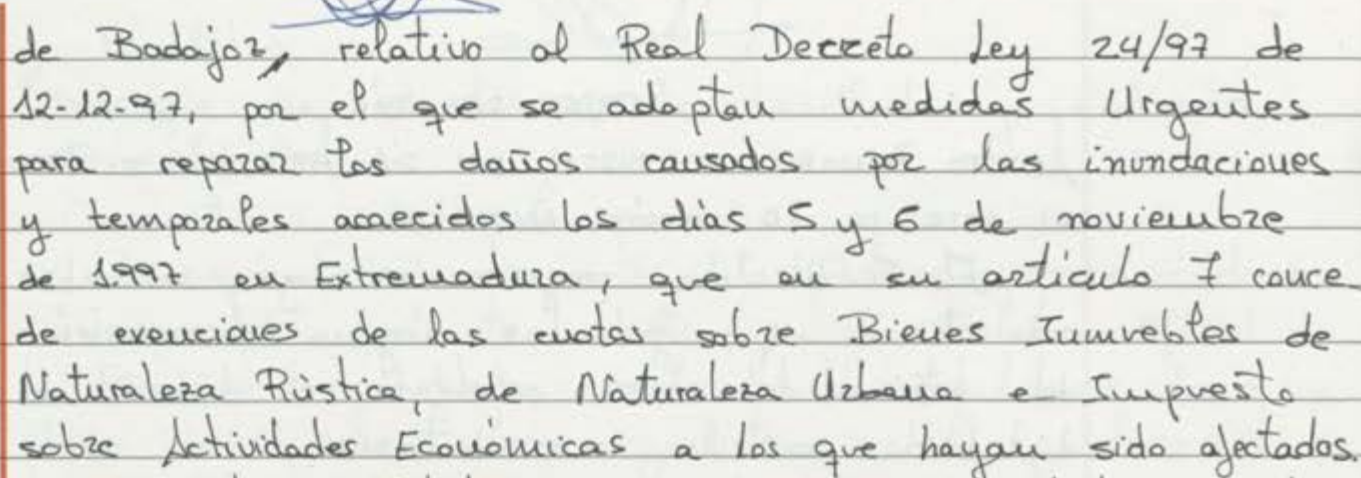 de Badajoz, relativo al Real Decreto Ley 24/97 de
12-12-97, por el que se adoptan medidas Urgentes
para reparar los daños causados por las inundaciones
y temporales acaecidos los días 5 y 6 de noviembre
de 1.997 en Extremadura, que en su artículo 7 conce
de exenciones de las cuotas sobre Bienes Inmuebles de
Naturaleza Rústica, de Naturaleza Urbana e Impuesto
sobre Actividades Económicas a los que hayan sido afectados.